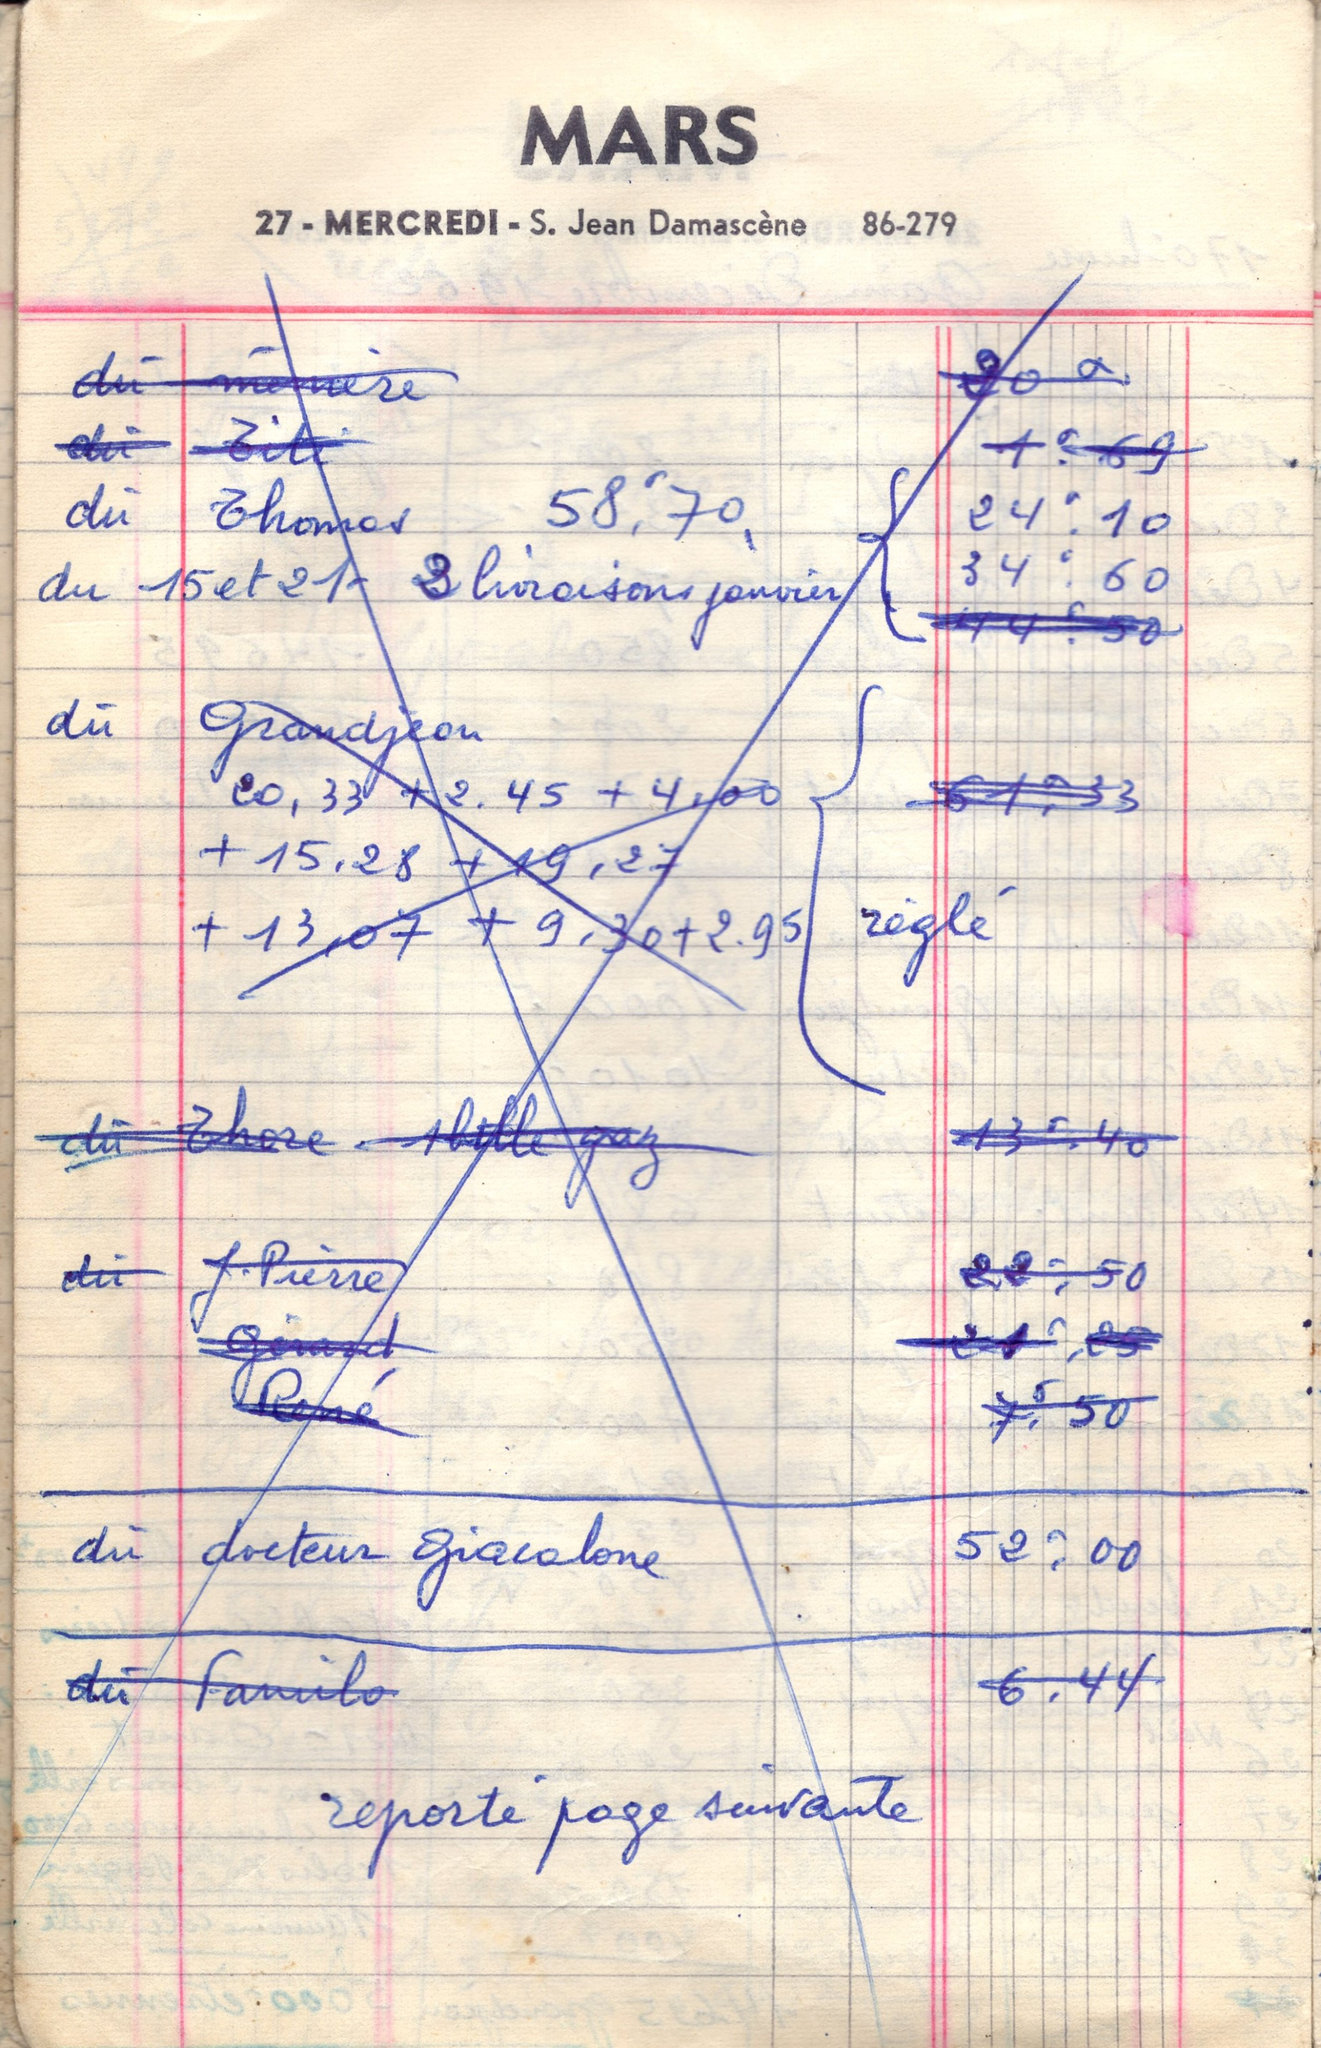 MARS
27 - MERCREDI - S. Jean Damascène 86-279
dû mémère 30
dû Titi 1F.69
dû Thomas 58F.70 24F.10
du 15 et 21 - 2 livraisons janvier 34F.60
44F.50
dû Grandjean
20,33 + 2.45 + 4.00 61F.33
+ 15.28 + 19.27
+ 13,07 + 9.30 + 2.95 réglé
dû Thore - 1 bttle gaz 13F.40
dû J. Pierre 22F.50
Gérard 21F.25
René 7F.50
dû docteur Giacalone 52F.00
dû Familo 6.44
reporté page suivante